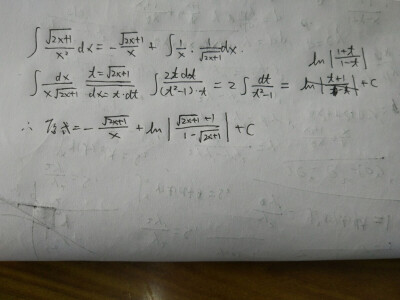 ∫ √(2x+1)/x² dx = - √(2x+1)/x + ∫ 1/x · 1/√(2x+1) dx
∫ dx/(x√(2x+1)) t=√(2x+1) dx=t·dt ∫ 2t dt/((t²-1)·t) = 2∫ dt/(t²-1) = ln|(1+t)/(1-t)| + C
∴ 原式 = - √(2x+1)/x + ln|(√(2x+1)+1)/(1-√(2x+1))| + C